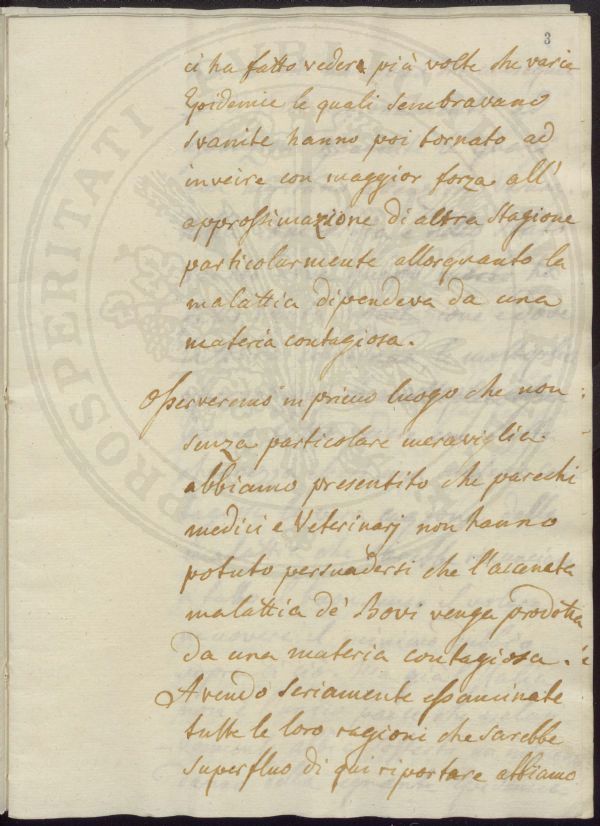 3
ci ha fatto vedere più volte che varie
Epidemie le quali sembravano
svanite hanno poi tornato ad
inveire con maggior forza all'
approssimazione di altra Stagione
particolarmente allorquanto la
malattia dipendeva da una
materia contagiosa.
Osserveremo in primo luogo che non
senza particolare meraviglia
abbiamo presentito che parechi
medici e Veterinarj non hanno
potuto persuadersi che l'acenata
malattia de' Bovi venga prodotta
da una materia contagiosa.
Avendo seriamente essaminate
tutte le loro ragioni che sarebbe
superfluo di qui riportare abbiamo
PROSPERITATI PUBLICAE